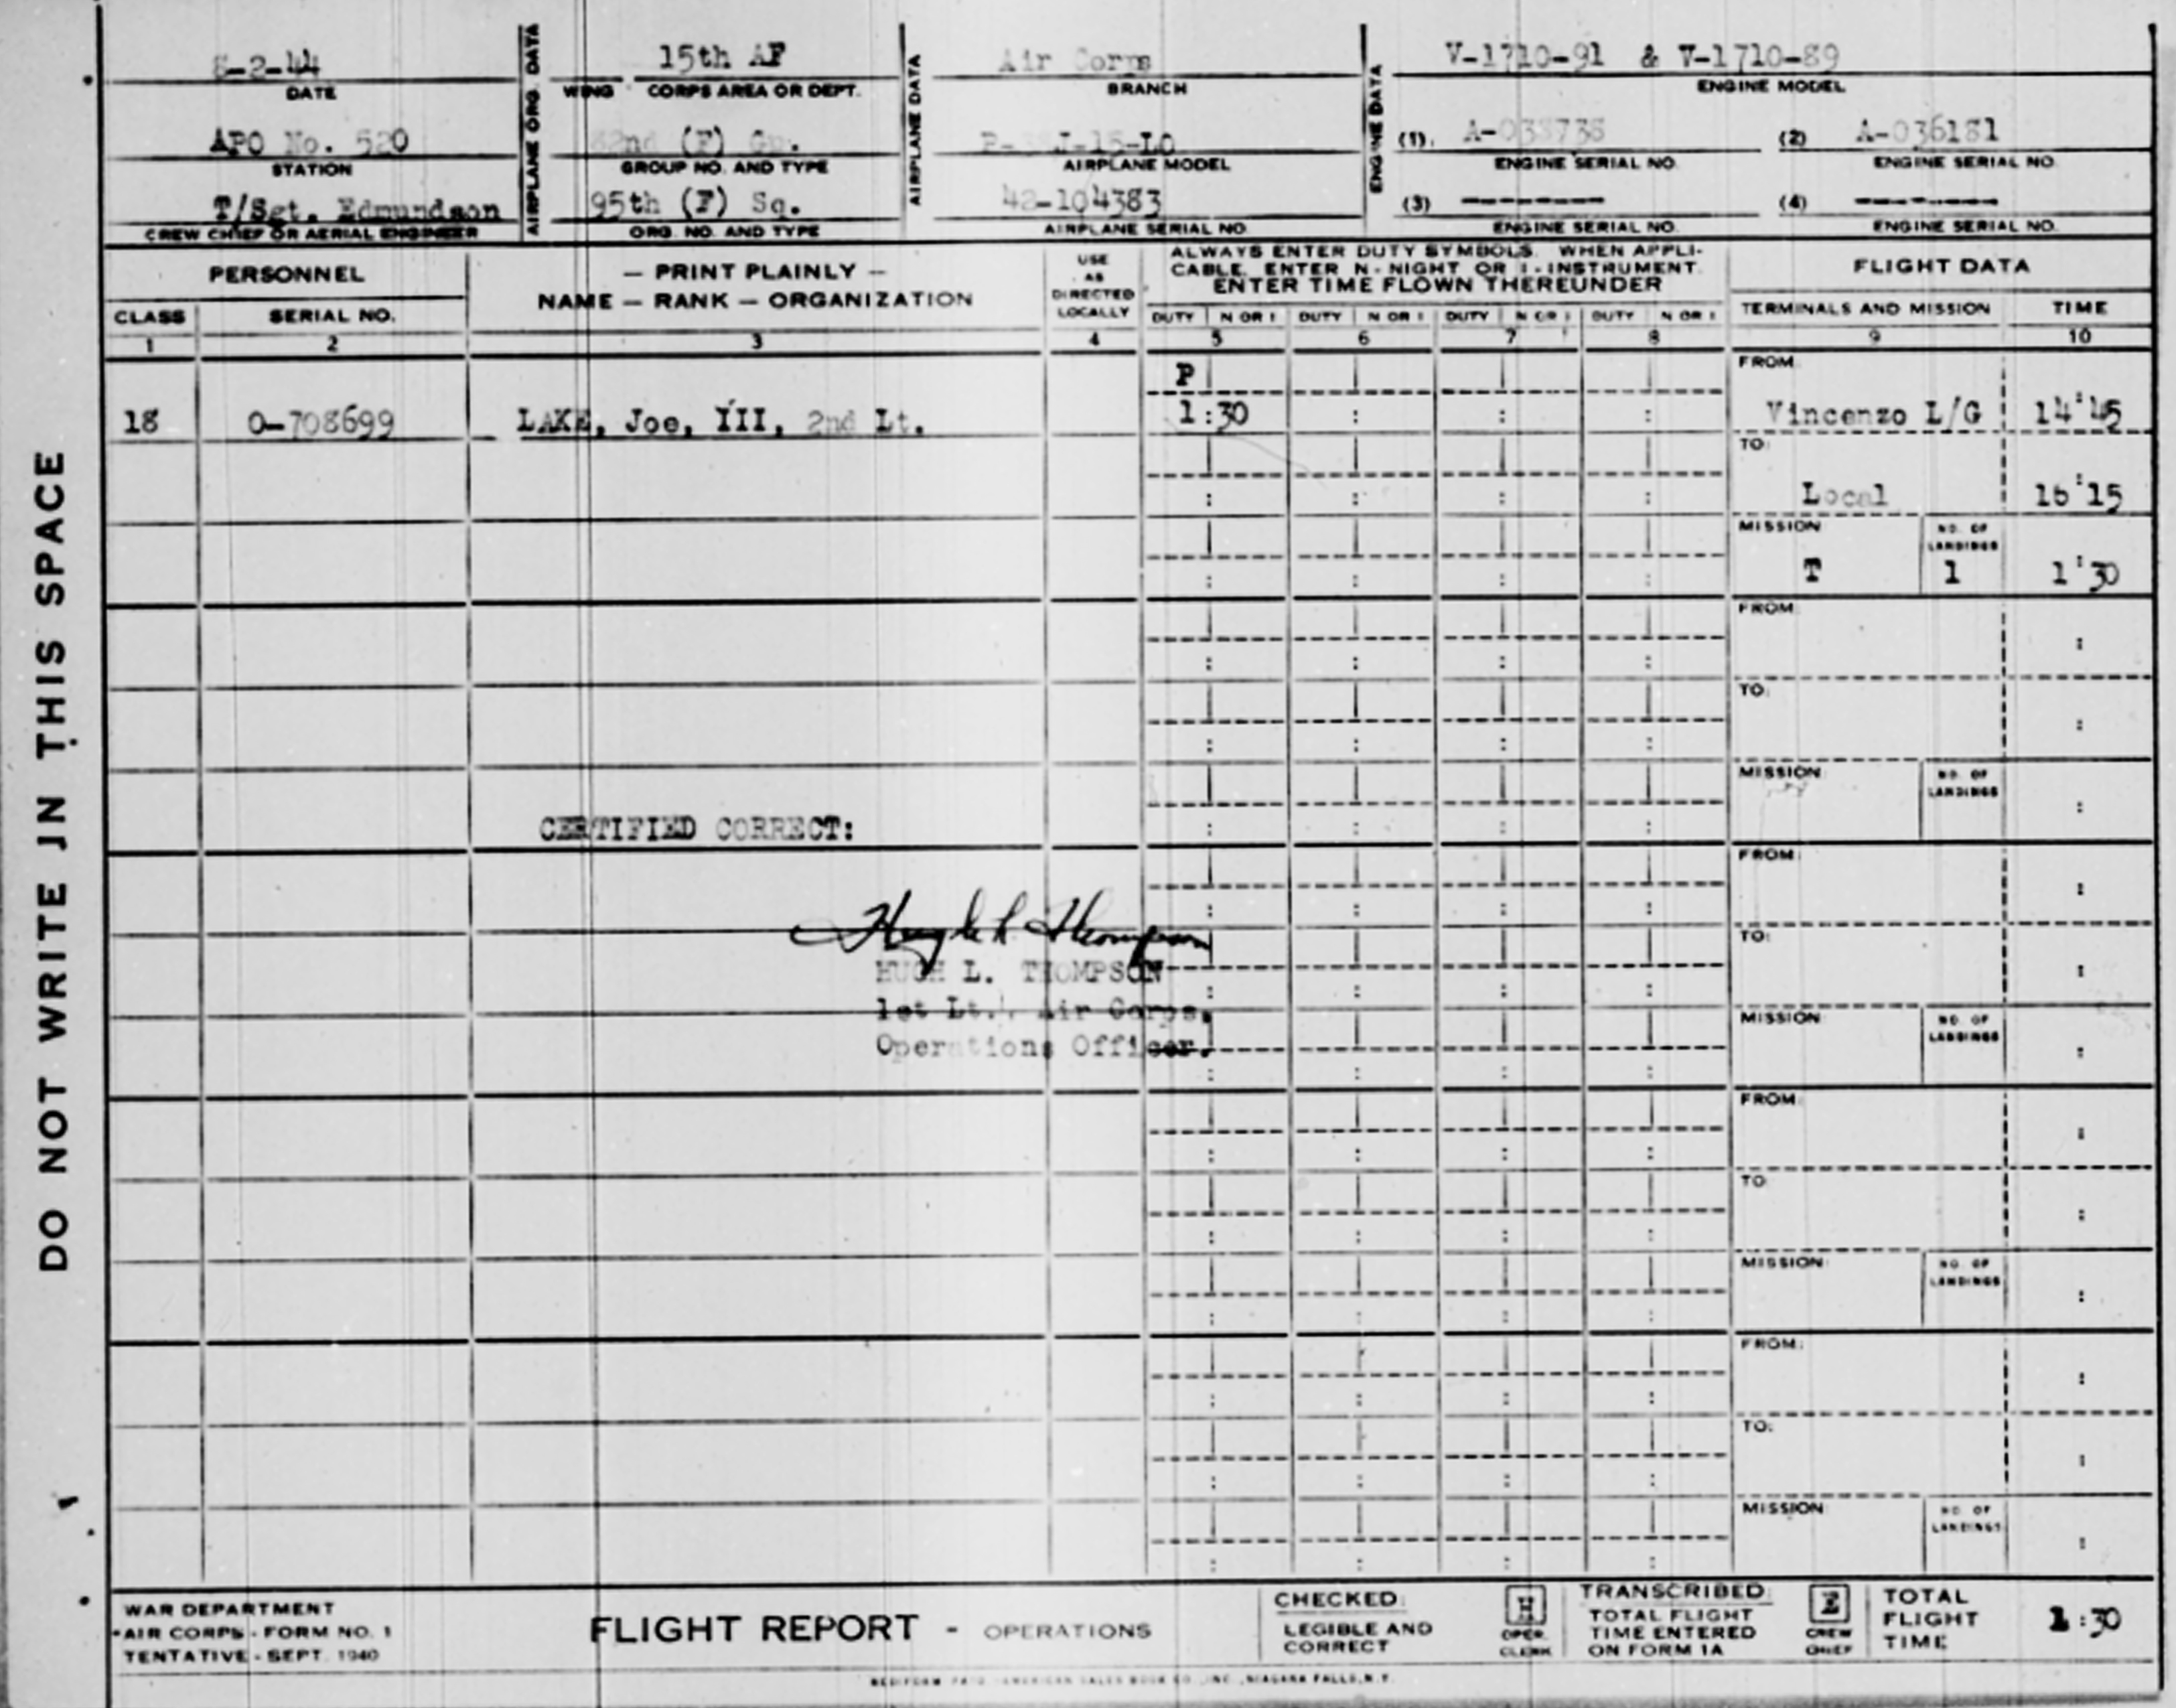 DO NOT WRITE IN THIS SPACE
8-2-44
DATE
APO No. 520
STATION
T/Sgt. Edmundson
CREW CHIEF OR AERIAL ENGINEER
AIRPLANE ORG. DATA
15th AF
WING CORPS AREA OR DEPT.
82nd (F) Gp.
GROUP NO. AND TYPE
95th (F) Sq.
ORG. NO. AND TYPE
AIRPLANE DATA
Air Corps
BRANCH
P-38J-15-LO
AIRPLANE MODEL
42-104383
AIRPLANE SERIAL NO.
ENGINE DATA
V-1710-91 & V-1710-89
ENGINE MODEL
(1). (2) A-036181
ENGINE SERIAL NO. ENGINE SERIAL NO.
(3) -------- (4) --------
ENGINE SERIAL NO. ENGINE SERIAL NO.
PERSONNEL
CLASS SERIAL NO.
1 2
— PRINT PLAINLY —
NAME — RANK — ORGANIZATION
3
USE
AS
DIRECTED
LOCALLY
4
ALWAYS ENTER DUTY SYMBOLS. WHEN APPLI-
CABLE, ENTER N - NIGHT OR I - INSTRUMENT.
ENTER TIME FLOWN THEREUNDER
DUTY N OR I DUTY N OR I DUTY N OR I DUTY N OR I
5 6 7 8
FLIGHT DATA
TERMINALS AND MISSION TIME
9 10
18 0-708699 LAKE, Joe, III, 2nd Lt.
P
1:30
FROM
Vincenzo L/G 14:45
TO:
Local 16:15
MISSION NO. OF LANDINGS
T 1 1:30
FROM
TO:
MISSION NO. OF LANDINGS
CERTIFIED CORRECT:
FROM
TO:
MISSION NO. OF LANDINGS
Hugh L Thompson
HUGH L. THOMPSON
1st Lt., Air Corps,
Operations Officer.
FROM
TO
MISSION NO. OF LANDINGS
FROM:
TO:
MISSION NO. OF LANDINGS
WAR DEPARTMENT
AIR CORPS - FORM NO. 1
TENTATIVE - SEPT. 1940
FLIGHT REPORT - OPERATIONS
CHECKED:
LEGIBLE AND
CORRECT
OPER.
CLERK
TRANSCRIBED:
TOTAL FLIGHT
TIME ENTERED
ON FORM 1A
CREW
CHIEF
TOTAL
FLIGHT
TIME
1:30
AMERICAN SALES BOOK CO., INC., NIAGARA FALLS, N.Y.